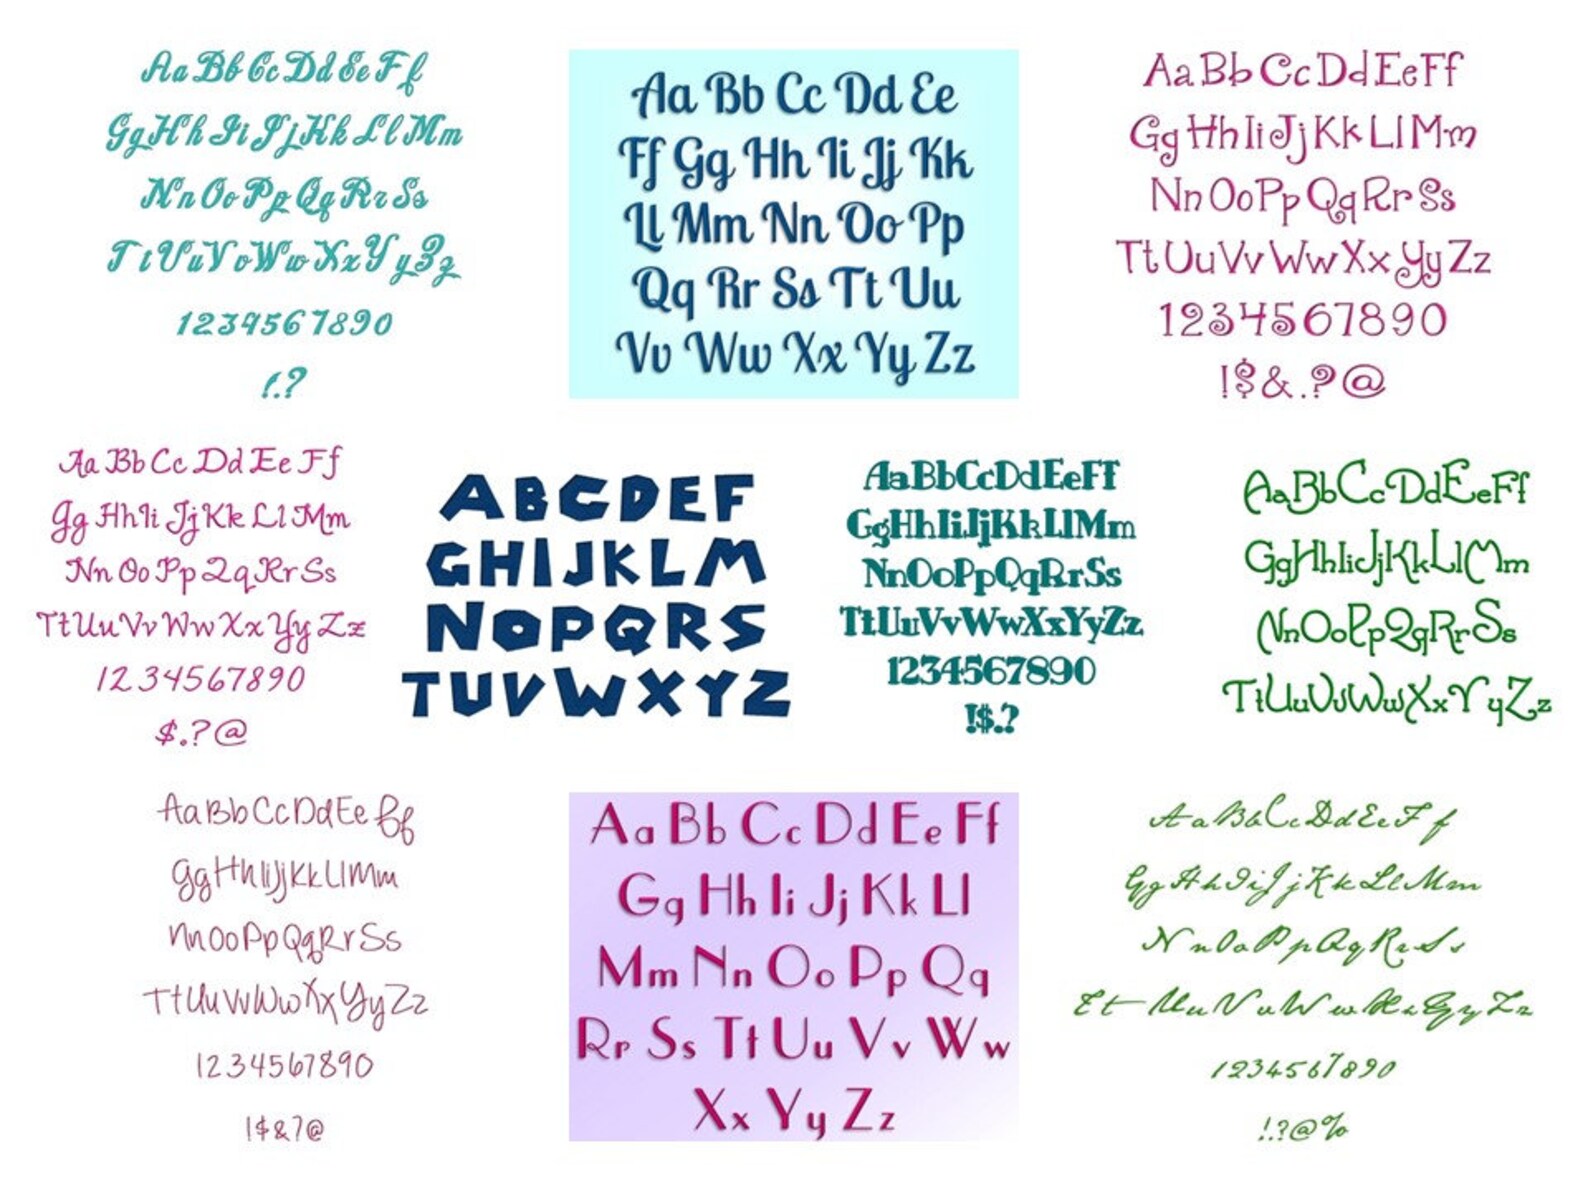 AaBbCcDdEeFf
GgHhIiJjKkLlMm
NnOoPpQqRrSs
TtUuVvWwXxYyZz
1234567890
!.?
Aa Bb Cc Dd Ee
Ff Gg Hh Ii Jj Kk
Ll Mm Nn Oo Pp
Qq Rr Ss Tt Uu
Vv Ww Xx Yy Zz
AaBbCcDdEeFf
GgHhIiJjKkLlMm
NnOoPpQqRrSs
TtUuVvWwXxYyZz
1234567890
!$&.?@
Aa Bb Cc Dd Ee Ff
Gg Hh Ii Jj Kk Ll Mm
Nn Oo Pp Qq Rr Ss
Tt Uu Vv Ww Xx Yy Zz
1234567890
$.?@
ABCDEF
GHIJKLM
NOPQRS
TUVWXYZ
AaBbCcDdEeFf
GgHhIiJjKkLlMm
NnOoPpQqRrSs
TtUuVvWwXxYyZz
1234567890
!$.?
AaBbCcDdEeFf
GgHhIiJjKkLlMm
NnOoPpQqRrSs
TtUuVvWwXxYyZz
AaBbCcDdEeFf
GgHhIiJjKkLlMm
NnOoPpQqRrSs
TtUuVvWwXxYyZz
1234567890
!$&?@
Aa Bb Cc Dd Ee Ff
Gg Hh Ii Jj Kk Ll
Mm Nn Oo Pp Qq
Rr Ss Tt Uu Vv Ww
Xx Yy Zz
AaBbCcDdEeFf
GgHhIiJjKkLlMm
NnOoPpQqRrSs
TtUuVvWwXxYyZz
1234567890
!.?@%